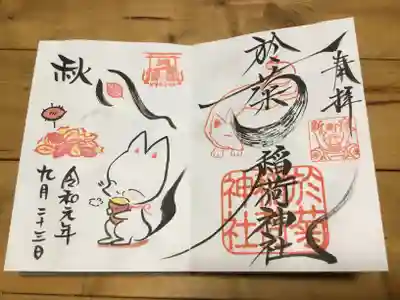 奉拝
於菊
稲荷神社
於菊
神社
秋
令和元年
九月二十三日